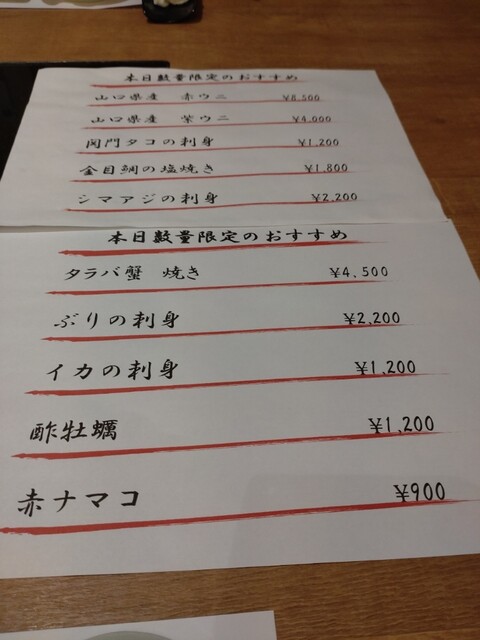 本日数量限定のおすすめ
山口県産 赤ウニ ¥8,500
山口県産 紫ウニ ¥4,000
関門タコの刺身 ¥1,200
金目鯛の塩焼き ¥1,800
シマアジの刺身 ¥2,200
本日数量限定のおすすめ
タラバ蟹 焼き ¥4,500
ぶりの刺身 ¥2,200
イカの刺身 ¥1,200
酢牡蠣 ¥1,200
赤ナマコ ¥900